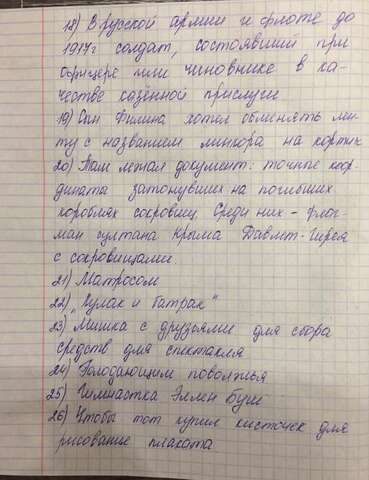 18) В русской армии и флоте до
1917г солдат, состоявший при
офицере или чиновнике в ка-
честве казённой прислуги
19) Сын Филина хотел обменять лен-
ту с названием линкора на кортик
20) Там лежал документ: точные коор-
дината затонувших на погибших
кораблях сокровищ. Среди них - флаг-
ман султана Крыма Давлет-Гирея
с сокровищами.
21) Матросом
22) „Кулак и батрак"
23) Мишка с друзьями для сбора
средств для спектакля
24) Голодающим поволжья
25) Гимнастка Эллен Буш
26) Чтобы тот купил кисточек для
рисование плаката